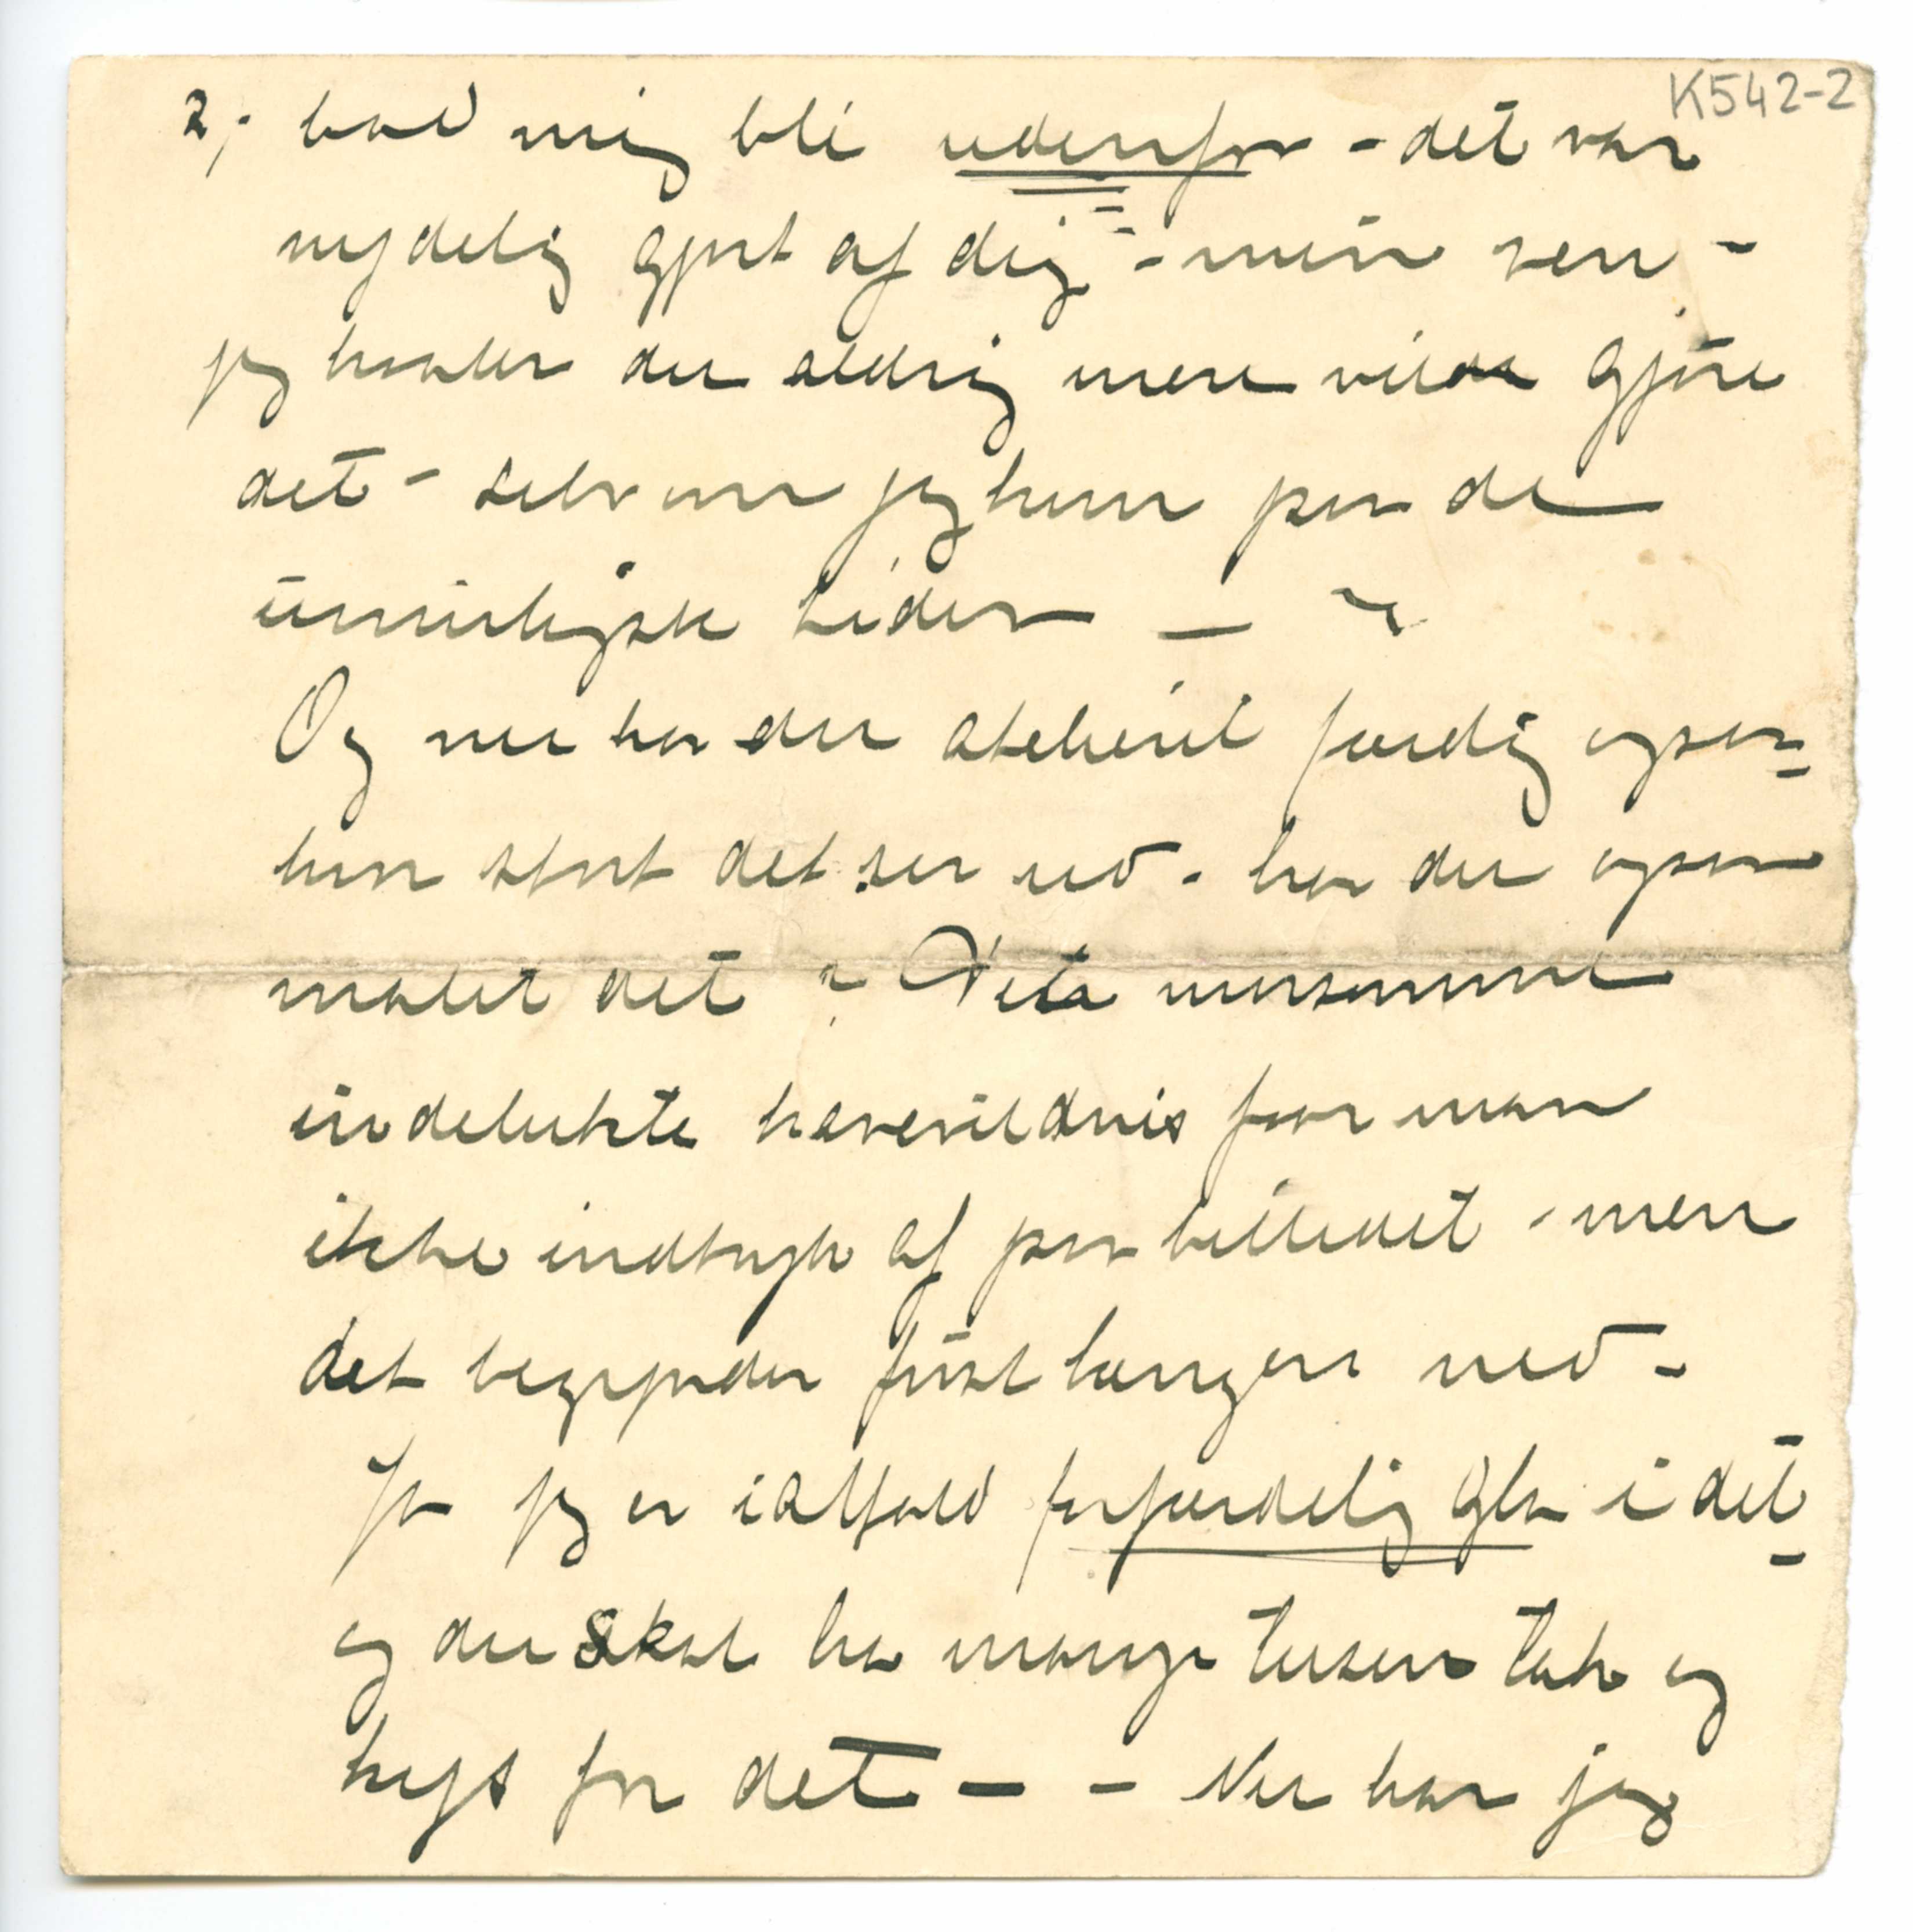 K542-2
2, bad mig bli udenfor - det var
nydelig gjort af dig - min ven -
jeg haaber du aldrig mere vilde gjøre
det - selv om jeg kom paa de
umuligste tider —
Og nu har du atelieret færdig ogsaa -
hvor stort det ser ud - har du ogsaa
malet det ? Dette morsomme
indelukte havevildnis faar man
ikke indtryk af paa billedet - men
det begynder først længere ned -
Ja jeg er ialfald forfærdelig gla i det -
og du skal ha mange tusen tak og
kys for det — - Nu har jeg